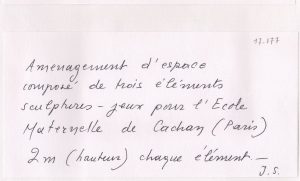 17-177
Amenagement d'espace
composé de trois éléments
sculptures - jeux pour l'Ecole
Maternelle de Cachan (Paris)
2m (hauteur) chaque élément. —
J.S.